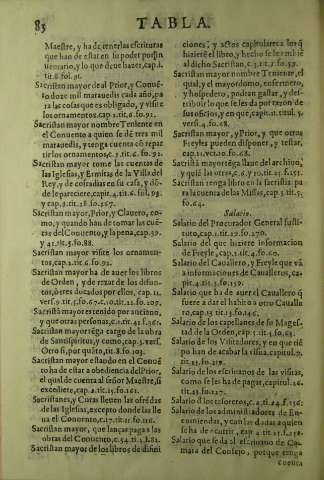 83 TABLA.
Maestre, y ha de tenerlas escrituras
que han de estar en su poder por
uentario, y lo que deue hazer, cap.
tit.6.fol.91.
Sacristan mayor de al Prior, y Conuē
lo doze mil marauedis cada año, pa
ra las cosas que es obligado, y visite
los ornamentos. cap.1.tit.6.fo.91.
Sacristan mayor nombre Teniente en
el Conuento a quien se dē tres mil
marauedis, y tenga cuenta cō repar
tir los ornamentos, c.3.tit.6. fo. 92.
Sacristan mayor tome las cuentas de
las Iglesias, y Ermitas de la Villa del
Rey, y de cofradias en su casa, y dō-
de le pareciere, capit.4.tit.6. fol. 93.
y cap.3.tit.18.fo.367.
Sacristan mayor, Prior, y Clauero, co-
mo, y quando han de tomar las cuē-
tas del Conuento, y la pena, cap.39.
y 41.tit.5.fo.88.
Sacristan mayor visite los ornamen-
tos, cap.1.tit.6.fo.91.
Sacristan mayor ha de auer los libros
de Orden, y de rezar de los difun-
tos, ò tres ducados por ellos, cap.11.
vers.9.tit.5.fo.67.c.10.tit.12.fo.207.
Sacristā mayor es tenido por anciano,
y que otras personas, c.11.tit.45.f.361.
Sacristan mayor tēga cargo de la obra
de Santispiritus, y como, cap.5. vers.
Otrosi, por quāto, tit.8.fo.103.
Sacristan mayor estando en el Conuē
to ha de estar a obediencia del Prior,
el qual de cuenta al señor Maestre, si
excediere, cap.2.tit.45.fo.161.
Sacristanes, y Curas lleuen las ofrēdas
de las Iglesias, excepto donde las lle
ua el Conuento, c.17.tit.11.fo.110.
Sacristan mayor, que lanças paga a las
obras del Conuento, c.54.tit.5.f.82.
Sacristan mayor de los libros de difini
ciones, y actos capitulares a los q̄
hiziere el libro, y hecho se le embie
al dicho Sacristan, c.3.tit.5.fo.59.
Sacristan mayor nombre Teniente, el
qual, y el mayordomo, enfermero,
y hospedero, podran gastar, y des-
tribuir lo que se les da por razon de
sus oficios, y en que, capit.11.titul. 5.
vers.4.fo.68.
Sacristan mayor, y Prior, y que otras
Freyles pueden disponer, y testar,
cap.11.vers.10.fo.68.
Sacristā mayor tēga llaue del archiuo,
y quiē las otras, c.6.y 10.tit.25.f.151.
Sacristan tenga libro en la sacristia pa
ra la cuenta de las Missas, cap.5.tit.5.
fo.64.
Salario.
Salario del Procurador General susti-
tuto, cap.1.tit.19.fo.170.
Salario del que hiziere informacion
de Freyle, cap.1.tit.4.fo.60.
Salario del Cauallero, y Freyle que vā
a informaciones de Caualleros, ca-
pit.4.tit.3.fo.159.
Salario que ha de auer el Cauallero q̄
fuere a dar el habito a otro Cauallo
ro, cap.13.fo.146.
Salario de los capellanes de su Magest-
tad de la Orden, cap.15.tit.5.fo.63.
Salario de los Visitadores, y en que tiē
po han de acabar la visita, capitul. 7.
tit.23.fo.219.
Salario de los escriuanos de las visitas,
como se les ha de pagar, capitul.26.
tit.23.fo.227.
Salario del tesorero, c.4.ti.24.f.256.
Salario de los administradores de En-
comiendas, y a cuyas dadas aquien
se ha de recurrir, cap.4.tit.23.fo.218.
Salario que se da al escriuano de Ca-
mara del Consejo, porque tenga
cuenta